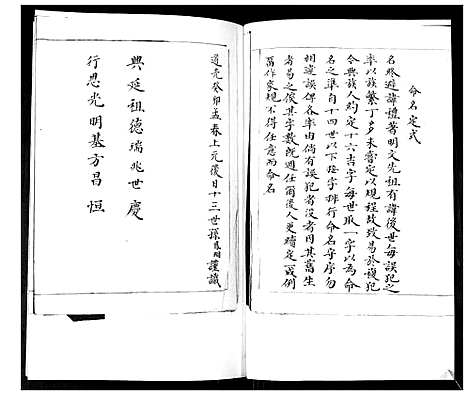 命名定式
名終避諱禮著明文先祖有諱後世每誤犯之
率以族繁丁多未嘗定以規程故致易於誤犯
令與族人約定十六吉字每世取一字以為命
名之準自十四世以下挨字排行命名守序勿
相違誤俾各率由倘有誤犯者沒者同其舊生
者易之俟其字數既週任爾後人更續定一或倒
當作家規不得任意而命名
道光癸卯孟春上元後日十三世孫 謹識
興延祖德瑞兆世慶
行思光明基方昌恒